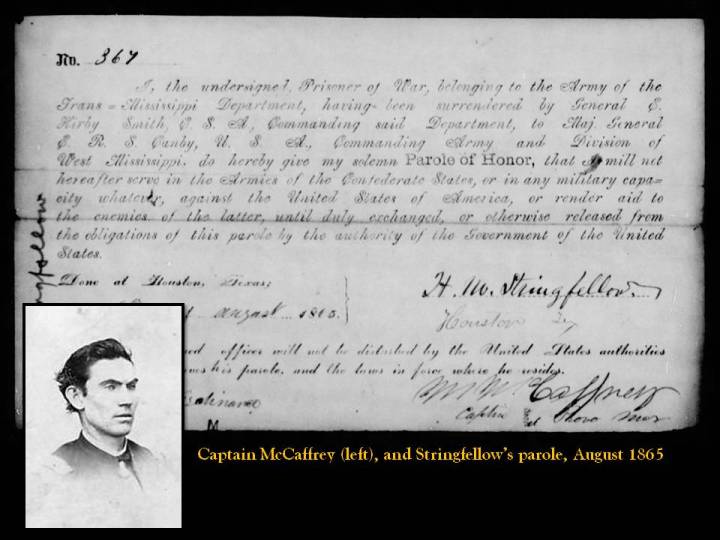 No. 367
I, the undersigned, Prisoner of War, belonging to the Army of the
Trans=Mississippi Department, having been surrendered by General E.
Kirby Smith, C. S. A., Commanding said Department, to Maj. General
E. R. S. Canby, U. S. A., Commanding Army and Division of
West Mississippi, do hereby give my solemn Parole of Honor, that I will not
hereafter serve in the Armies of the Confederate States, or in any military capa=
city whatever, against the United States of America, or render aid to
the enemies of the latter, until duly exchanged, or otherwise released from
the obligations of this parole by the authority of the Government of the United
States.
Done at Houston, Texas,
H. M. Stringfellow
August 1865.
Houston
officer will not be disturbed by the United States authorities
his parole, and the laws in force where he resides.
M McCaffrey
Captn
Captain McCaffrey (left), and Stringfellow's parole, August 1865